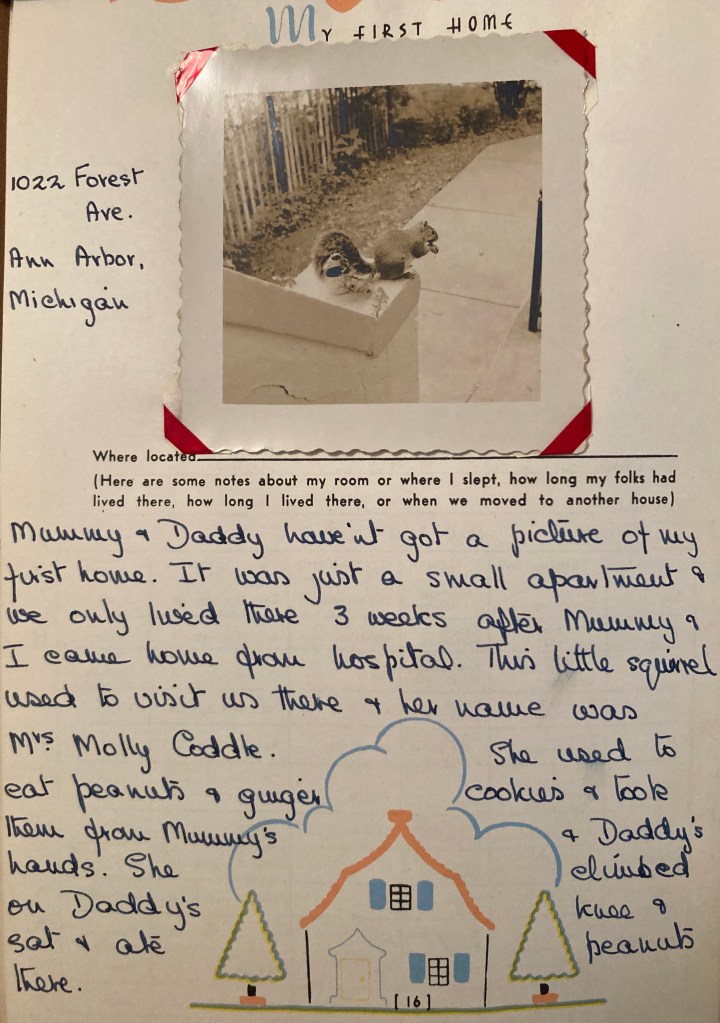 My FIRST HOME
1022 Forest
Ave.
Ann Arbor,
Michigan
Where located
(Here are some notes about my room or where I slept, how long my folks had
lived there, how long I lived there, or when we moved to another house)
Mummy & Daddy have'nt got a picture of my
first home. It was just a small apartment &
we only lived there 3 weeks after Mummy &
I came home from hospital. This little squirrel
used to visit us there & her name was
Mrs Molly Coddle. She used to
eat peanuts & ginger cookies & took
them from Mummy's & Daddy's
hands. She climbed
on Daddy's knee &
sat & ate peanuts
there.
[16]